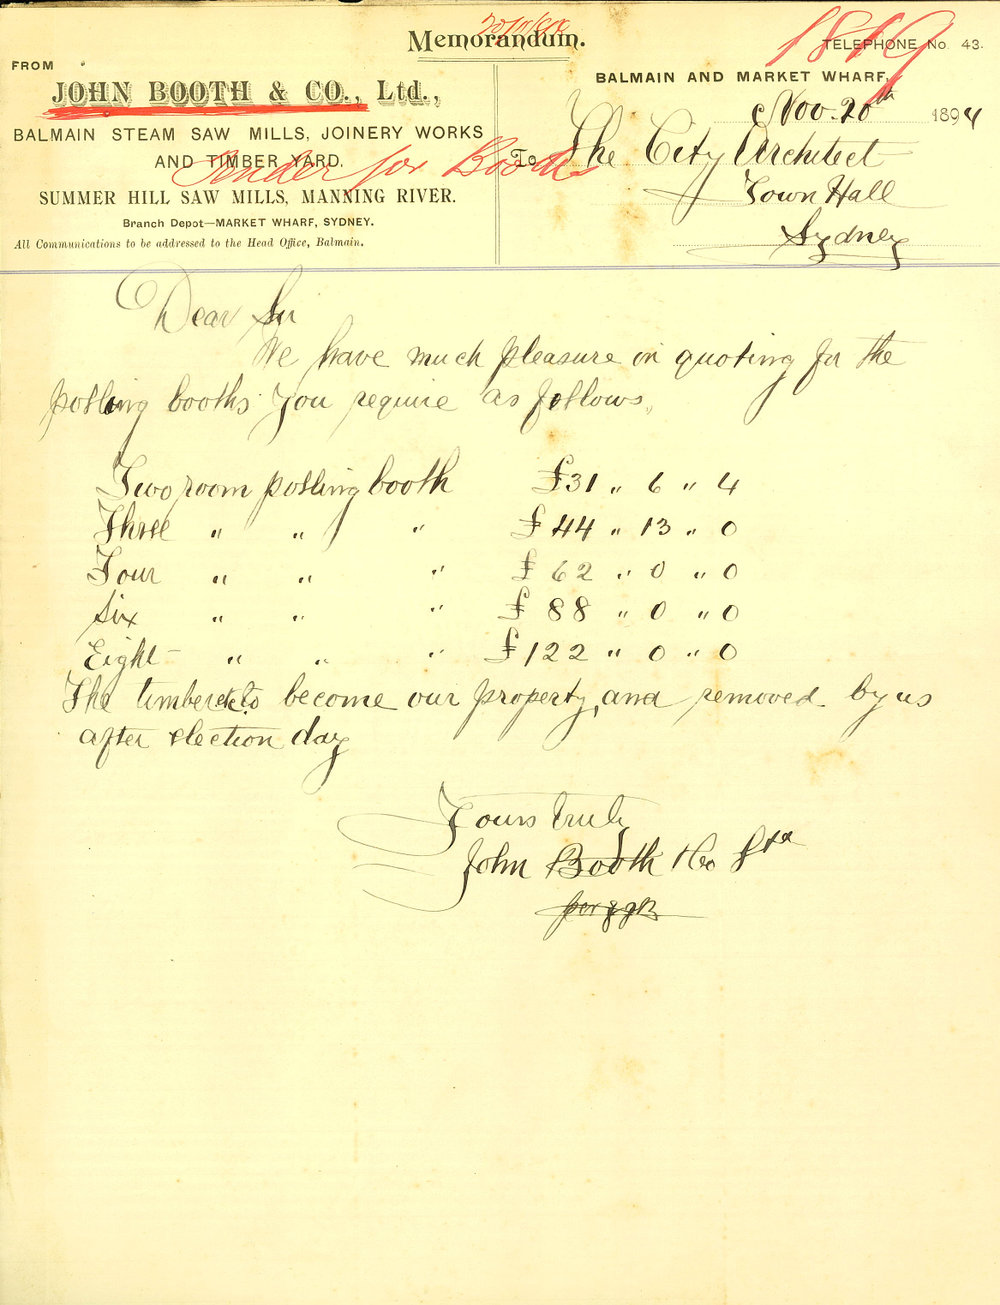 Memorandum.
1819
TELEPHONE No. 43.
FROM
JOHN BOOTH & CO., Ltd.,
BALMAIN STEAM SAW MILLS, JOINERY WORKS
AND TIMBER YARD.
SUMMER HILL SAW MILLS, MANNING RIVER.
Branch Depot—MARKET WHARF, SYDNEY.
All Communications to be addressed to the Head Office, Balmain.
Tender for Booths
BALMAIN AND MARKET WHARF,
Nov. 20th 1894
To The City Architect
Town Hall
Sydney
Dear Sir
We have much pleasure in quoting for the
polling booths you require as follows,
Two room polling booth £31 " 6 " 4
Three " " " £44 " 13 " 0
Four " " " £62 " 0 " 0
Six " " " £88 " 0 " 0
Eight " " " £122 " 0 " 0
The timber etc to become our property, and removed by us
after election day
Yours truly
John Booth & Co Ltd
per